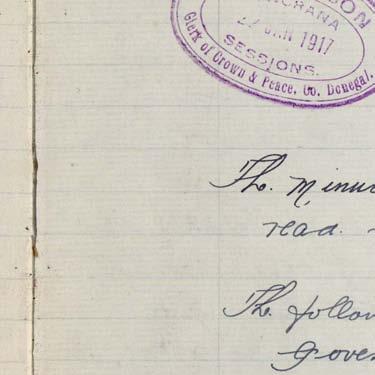 DON
CRANA
22 JAN 1917
SESSIONS.
Clerk of Crown & Peace, Co. Donegal.
The Minu
read.
The follow
Gove